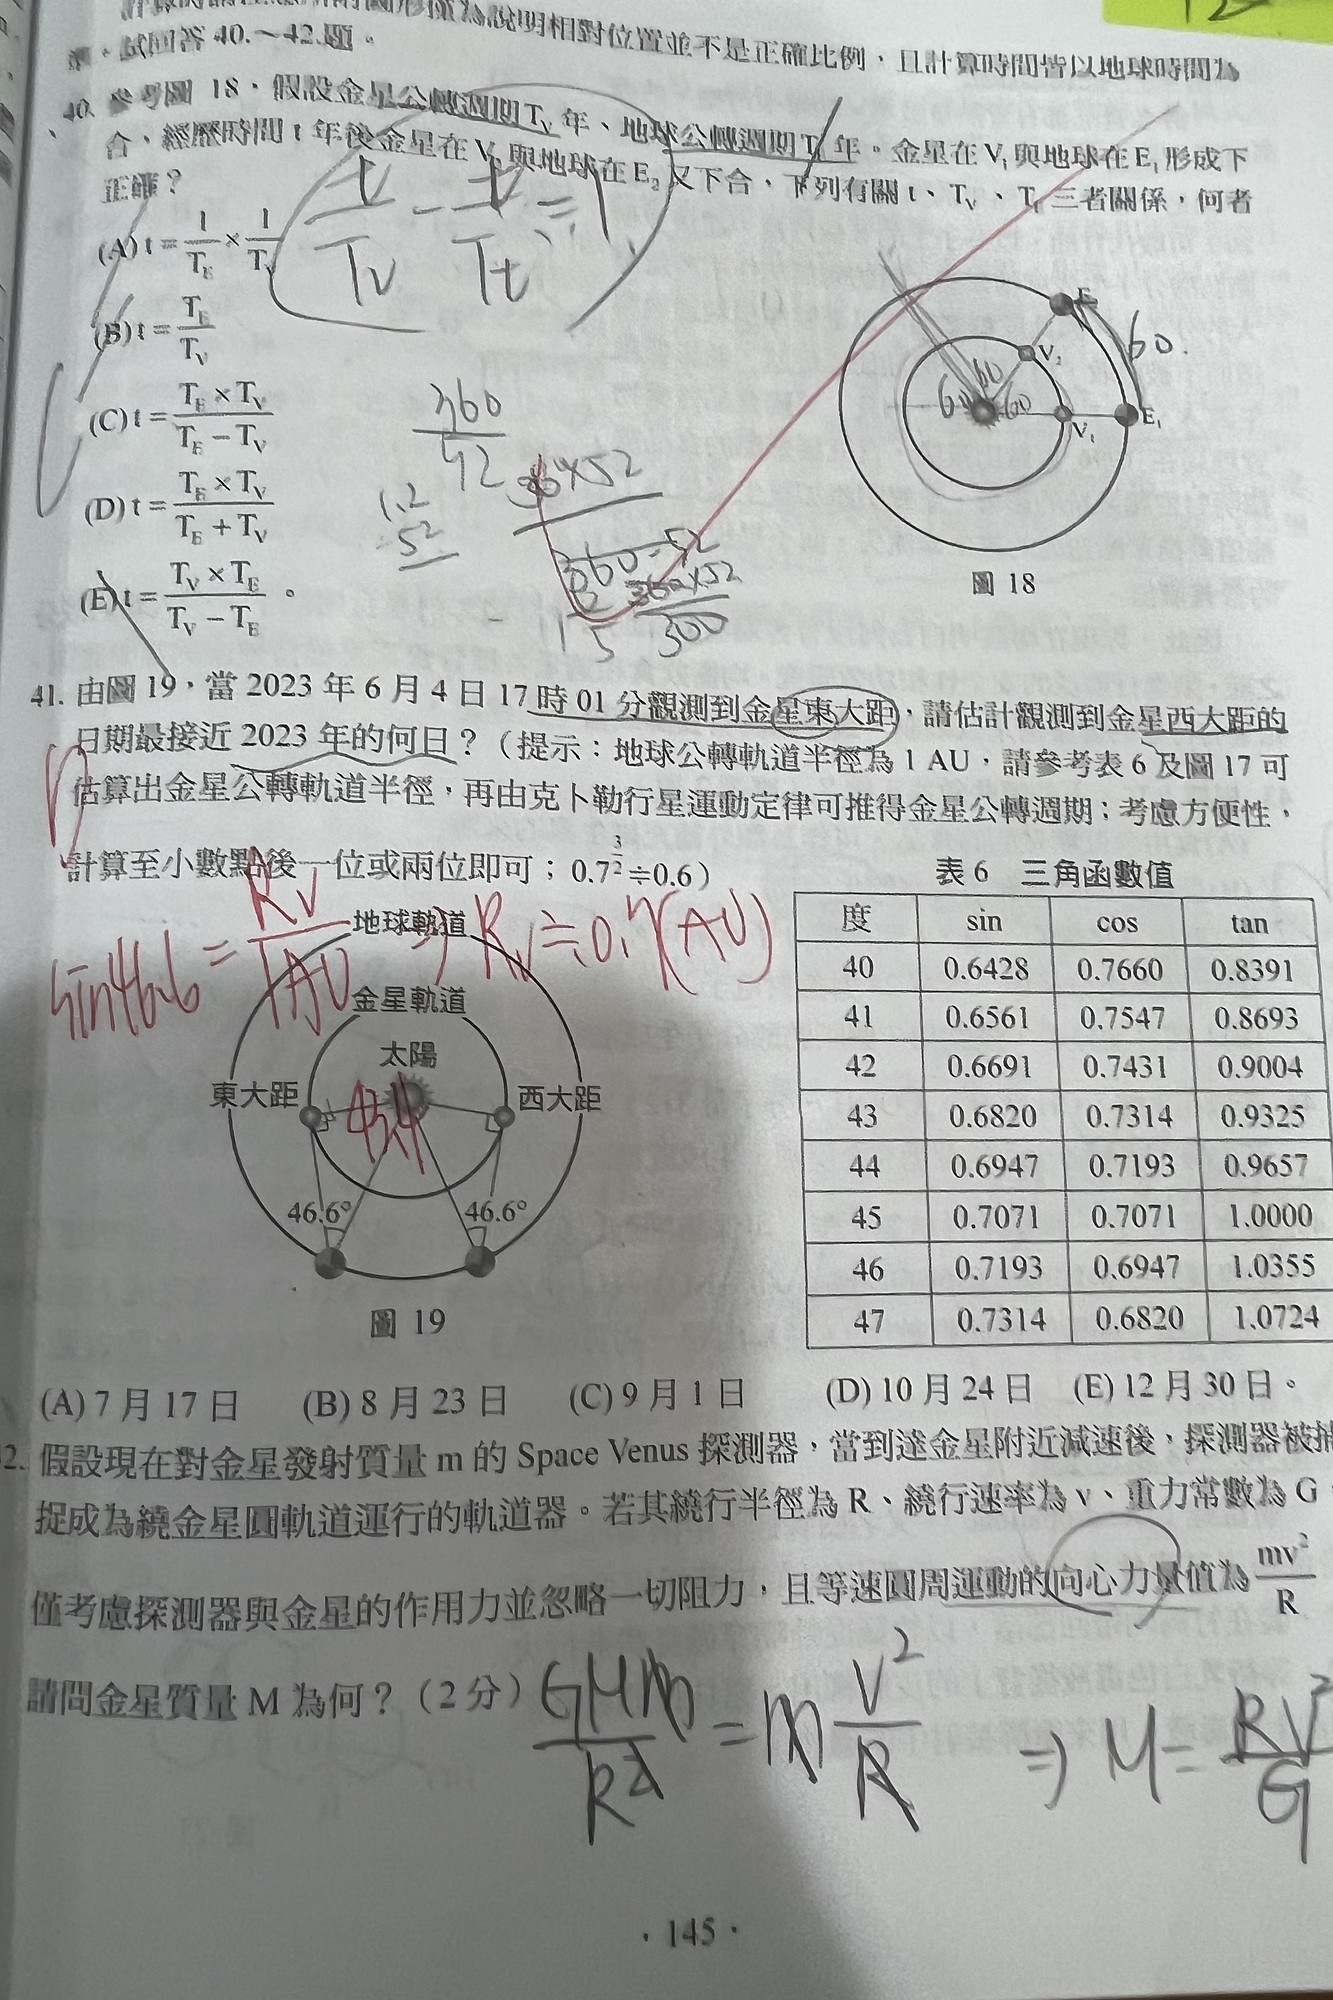 說明相對位置並不是正確比例，且計算時間皆以地球時間為
試回答 40.～42.題。
40. 參考圖 18，假設金星公轉週期 T_V 年、地球公轉週期 T_E 年。金星在 V₁ 與地球在 E₁ 形成下
合，經歷時間 t 年後金星在 V₂ 與地球在 E₂ 又下合，下列有關 t、T_V、T_E 三者關係，何者
正確？
(A) t = 1/T_E × 1/T_V
(B) t = T_E/T_V
(C) t = (T_E × T_V)/(T_E − T_V)
(D) t = (T_E × T_V)/(T_E + T_V)
(E) t = (T_V × T_E)/(T_V − T_E)。
t/Tv − t/Tt = 1
360/52
1.2
52
360−52
360×52
300
15
60
60
60.
60
V₂
V₁
E₁
圖 18
41. 由圖 19，當 2023 年 6 月 4 日 17 時 01 分觀測到金星東大距，請估計觀測到金星西大距的
日期最接近 2023 年的何日？（提示：地球公轉軌道半徑為 1 AU，請參考表 6 及圖 17 可
估算出金星公轉軌道半徑，再由克卜勒行星運動定律可推得金星公轉週期；考慮方便性，
計算至小數點後一位或兩位即可；0.7^(3/2)≑0.6）
sin46.6 = Rv/1AU ⇒ Rv≑0.7(AU)
地球軌道
金星軌道
太陽
東大距
西大距
43.4
46.6°
46.6°
圖 19
表 6 三角函數值
度 sin cos tan
40 0.6428 0.7660 0.8391
41 0.6561 0.7547 0.8693
42 0.6691 0.7431 0.9004
43 0.6820 0.7314 0.9325
44 0.6947 0.7193 0.9657
45 0.7071 0.7071 1.0000
46 0.7193 0.6947 1.0355
47 0.7314 0.6820 1.0724
(A) 7 月 17 日 (B) 8 月 23 日 (C) 9 月 1 日 (D) 10 月 24 日 (E) 12 月 30 日。
2. 假設現在對金星發射質量 m 的 Space Venus 探測器，當到達金星附近減速後，探測器被捕
捉成為繞金星圓軌道運行的軌道器。若其繞行半徑為 R、繞行速率為 v、重力常數為 G，
僅考慮探測器與金星的作用力並忽略一切阻力，且等速圓周運動的向心力量值為 mv²/R
請問金星質量 M 為何？（2 分）
GMm/R² = m V²/R ⇒ M = RV²/G
·145·